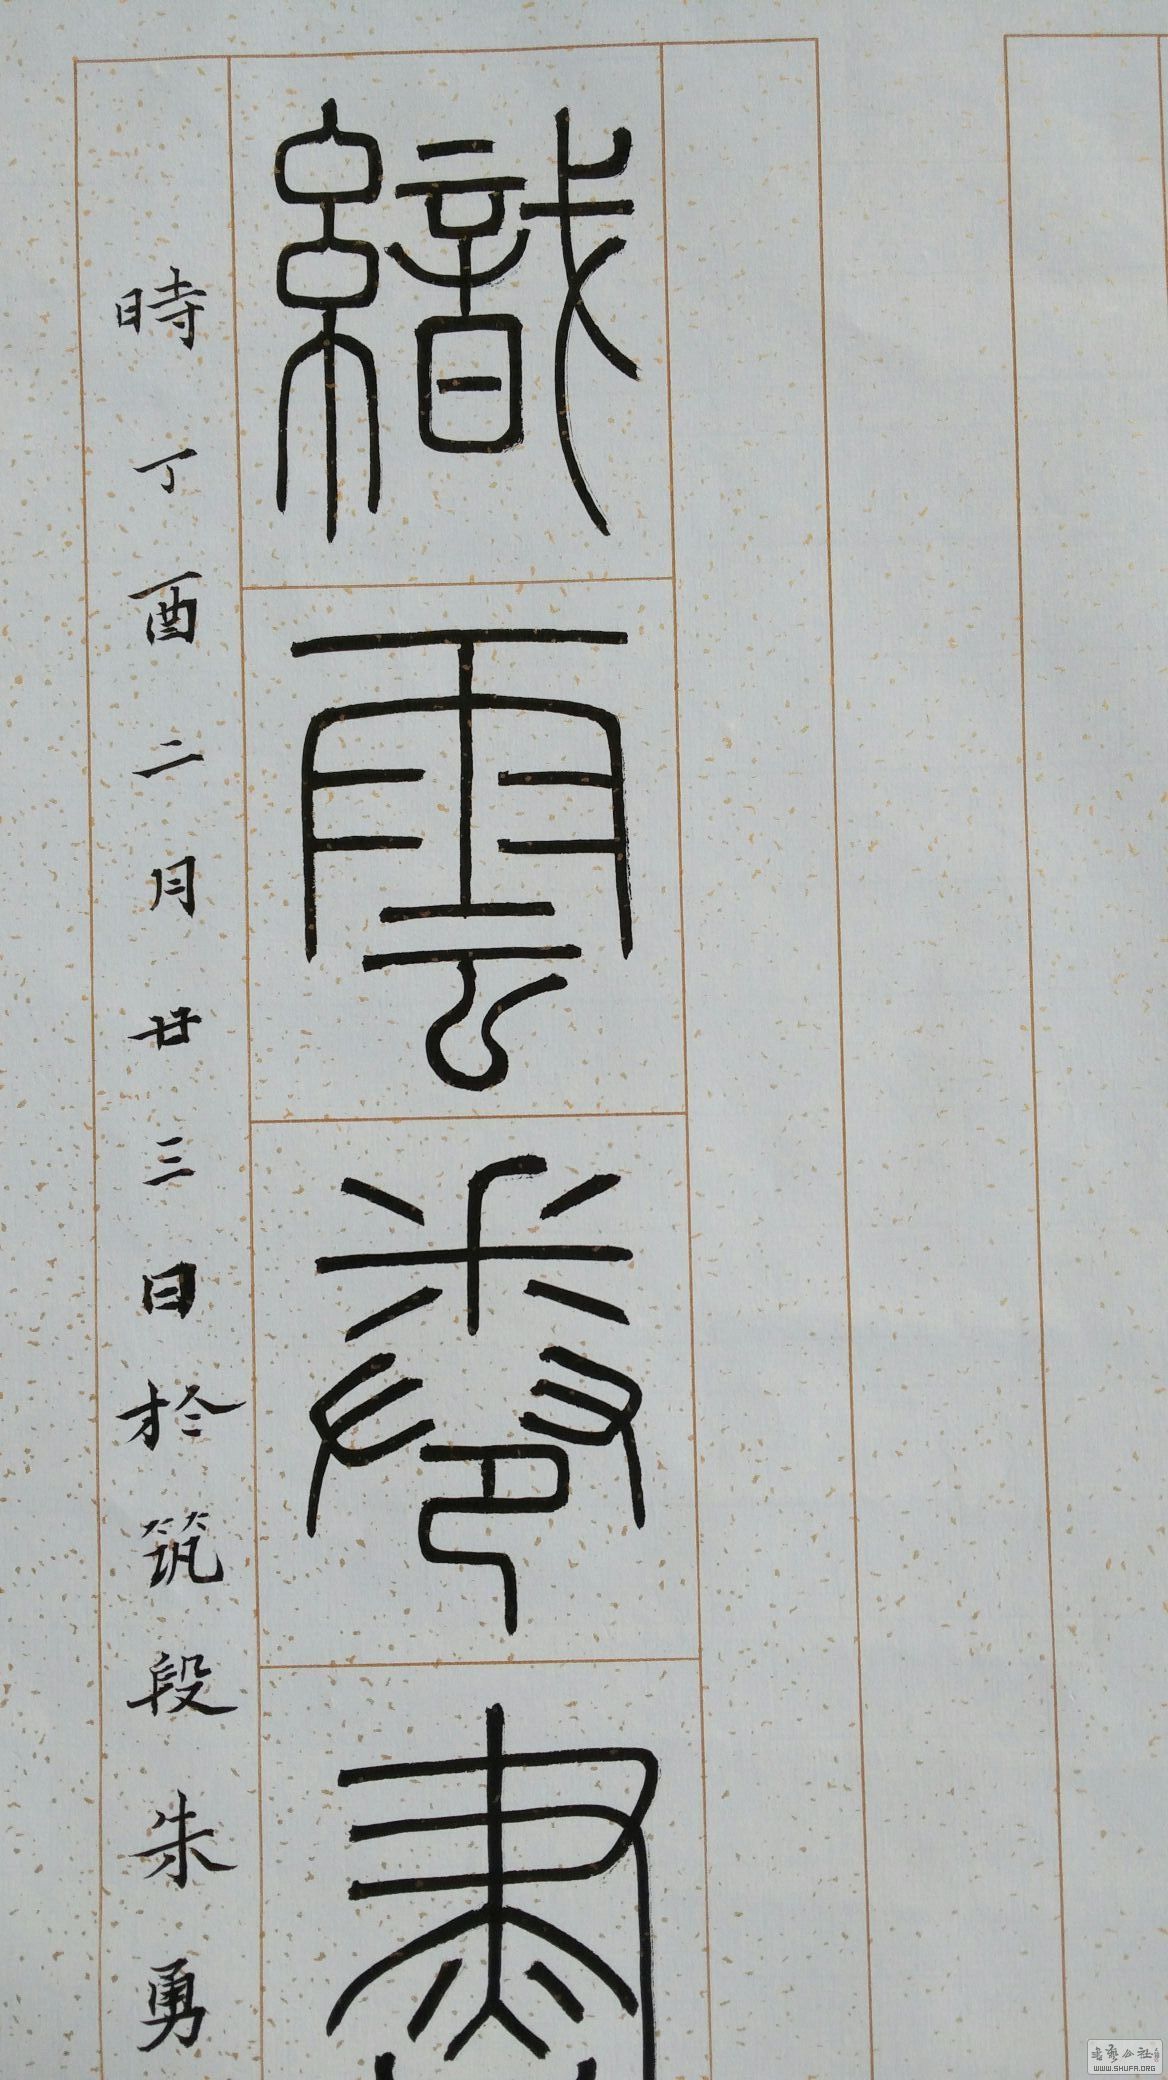 織雲卷
時丁酉二月廿三日於筑段朱勇
书艺公社
WWW.SHUFA.ORG